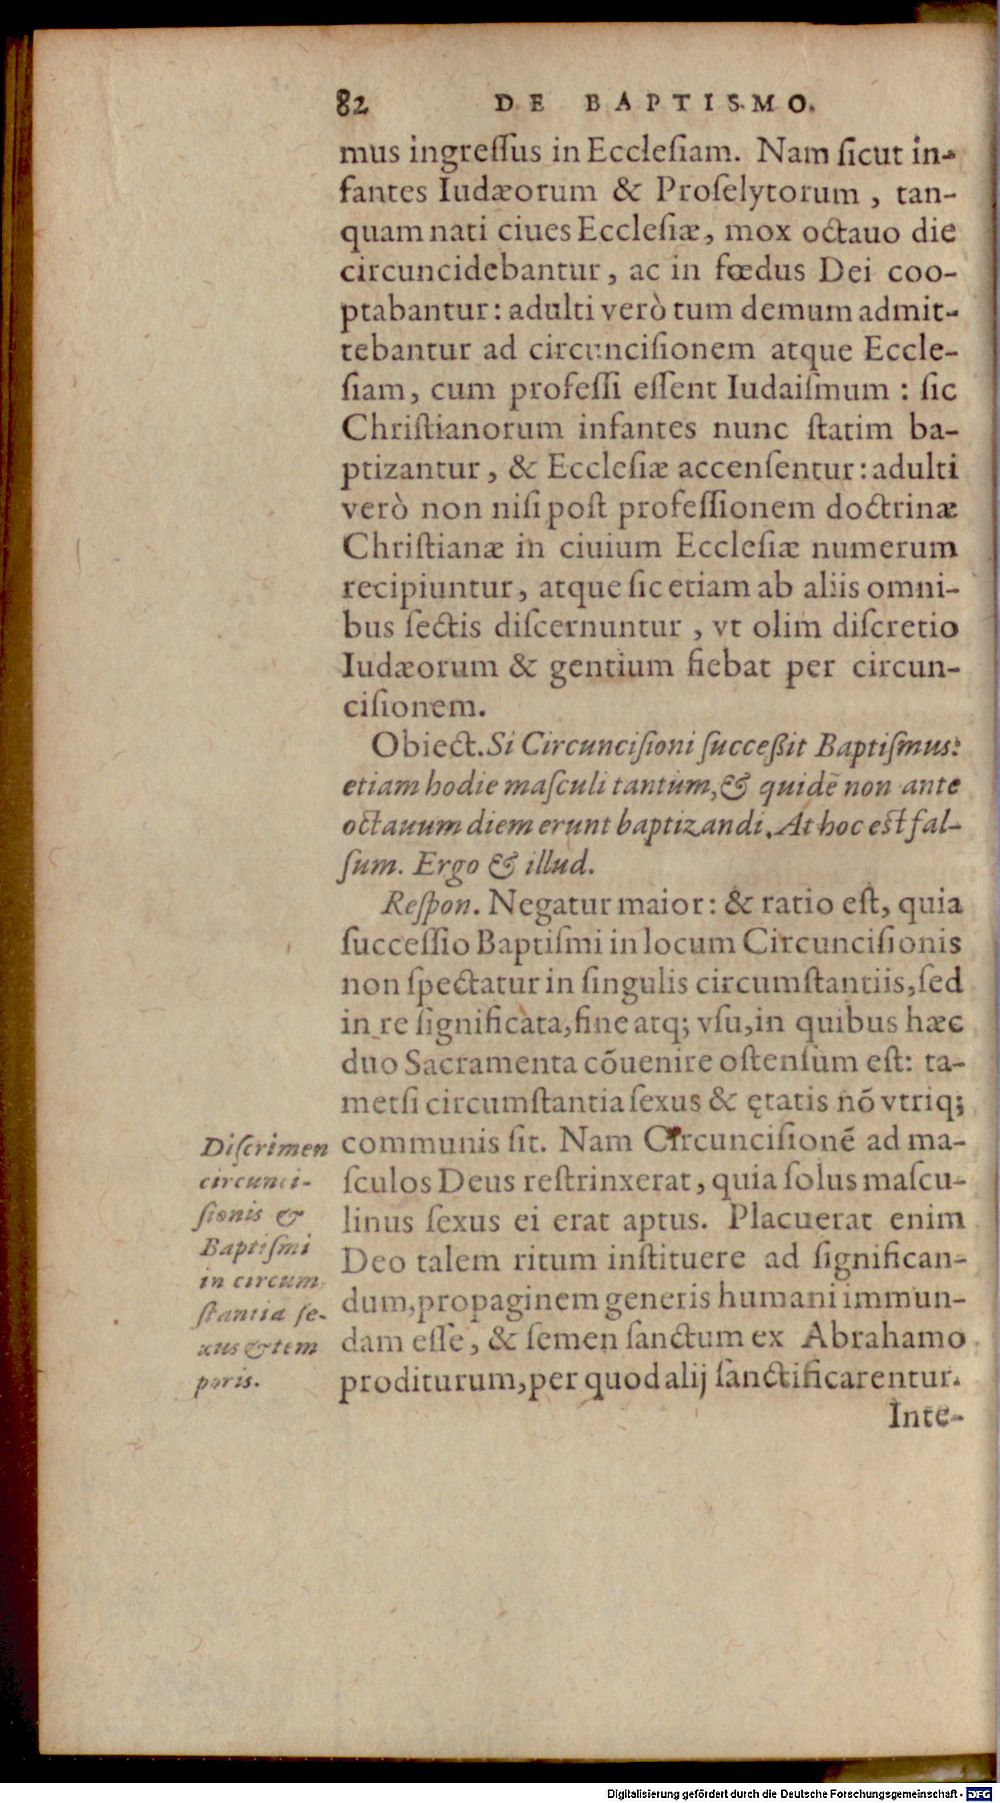 82 DE BAPTISMO.
mus ingreſſus in Eccleſiam. Nam ſicut in-
fantes Iudæorum & Proſelytorum, tan-
quam nati ciues Eccleſiæ, mox octauo die
circuncidebantur, ac in fœdus Dei coo-
ptabantur: adulti verò tum demum admit-
tebantur ad circunciſionem atque Eccle-
ſiam, cum profeſſi eſſent Iudaiſmum: ſic
Chriſtianorum infantes nunc ſtatim ba-
ptizantur, & Eccleſiæ accenſentur: adulti
verò non niſi poſt profeſſionem doctrinæ
Chriſtianæ in ciuium Eccleſiæ numerum
recipiuntur, atque ſic etiam ab aliis omni-
bus ſectis diſcernuntur, vt olim diſcretio
Iudæorum & gentium fiebat per circun-
ciſionem.
Obiect. Si Circunciſioni ſucceßit Baptiſmus:
etiam hodie maſculi tantùm, & quidē non ante
octauum diem erunt baptizandi. At hoc eſt fal-
ſum. Ergo & illud.
Reſpon. Negatur maior: & ratio eſt, quia
ſucceſſio Baptiſmi in locum Circunciſionis
non ſpectatur in ſingulis circumſtantiis, ſed
in re ſignificata, fine atq; vſu, in quibus hæc
duo Sacramenta cōuenire oſtenſum eſt: ta-
metſi circumſtantia ſexus & ętatis nō vtriq;
communis ſit. Nam Circunciſionē ad ma-
ſculos Deus reſtrinxerat, quia ſolus maſcu-
linus ſexus ei erat aptus. Placuerat enim
Deo talem ritum inſtituere ad ſignifican-
dum, propaginem generis humani immun-
dam eſſe, & ſemen ſanctum ex Abrahamo
proditurum, per quod alij ſanctificarentur.
Inte-
Diſcrimen
circunci-
ſionis &
Baptiſmi
in circum
ſtantia ſe-
xus & tem
poris.
Digitalisierung gefördert durch die Deutsche Forschungsgemeinschaft - DFG